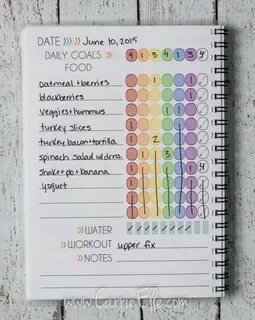 DATE »» June 10, 2015
DAILY GOALS 4 1 3 4 1 1 3 4
FOOD
oatmeal + berries 1 1
blackberries 1
veggies + hummus 1 1
turkey slices 1
turkey bacon + tortilla 2
spinach salad w/dress. 3
shake + pb + banana 1 4
yogurt
WATER
WORKOUT upper fix
NOTES
www.CarrieElle.com